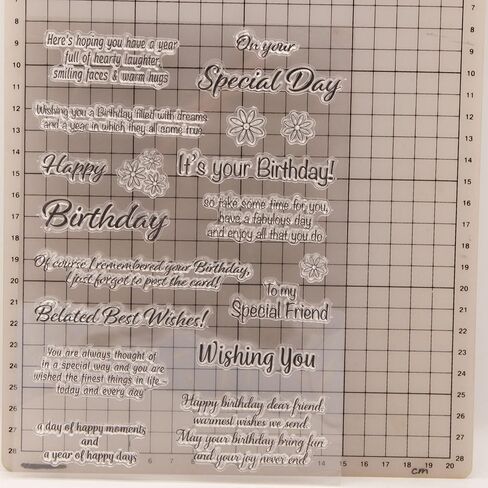 Here's hoping you have a year
full of hearty laughter,
smiling faces & warm hugs
On your
Special Day
Wishing you a Birthday filled with dreams
and a year in which they all come true.
Happy
It's your Birthday!
Birthday
so take some time for you,
have a fabulous day
and enjoy all that you do
Of course I remembered your Birthday,
I just forgot to post the card!
To my
Special Friend
Belated Best Wishes!
Wishing You
You are always thought of
in a special way and you are
wished the finest things in life -
today and every day
Happy birthday dear friend,
warmest wishes we send.
May your birthday bring fun
and your joy never end.
a day of happy moments
and
a year of happy days
8
9
10
11
12
13
14
15
16
17
18
19
20
21
22
23
24
25
26
27
28
12
14
16
17
18
19
20
cm